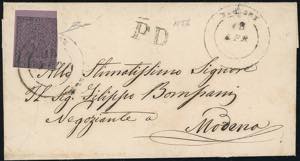 P.D
18
APR
Allo Stimatissimo Signore
Il Sig. Filippo Bompani
Negoziante a
Modena